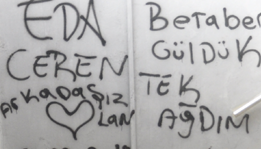 EDA
CEREN
ARKADAŞIZ
LAN
Beraber
GÜLDÜK
TEK
AĞDIM